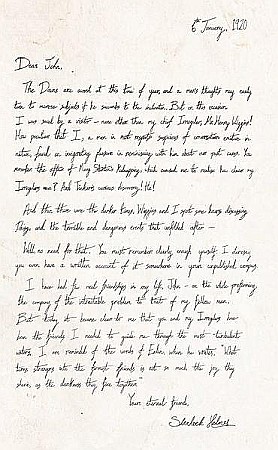 6th January, 1920
Dear John,
The Downs are quiet at this time of year, and a man's thoughts may easily
turn to morose subjects if he succumbs to the indoors. But on this occasion
I was saved by a visitor - none other than my chief Irregular, Mr Henry Wiggins!
How peculiar that I, a man in most regards suspicious of conversation entire in
nature, found an invigorating pleasure in reminiscing with him about our past cases. You
remember the affair of Mary Statton's kidnapping, which caused me to realise how clever my
Irregulars were? And Tucker's curious harmony! Ha!
And then there were the darker times. Wiggins and I spent some hours discussing
Paige, and the terrible and dangerous events that unfolded after —
Well, no need for that. You must remember clearly enough yourself. I daresay
you even have a written account of it somewhere in your unpublished corpus.
I have had few real friendships in my life, John - on the whole preferring
the company of the intractable problem to that of my fellow men.
But today, it became clear to me that you and my Irregulars have
been the friends I needed to guide me through the most turbulent
waters. I am reminded of the words of when he wrote, "What
turns strangers into the firmest friends is not so much the joy they
share, as the darkness they face together."
Your eternal friend,
Sherlock Holmes